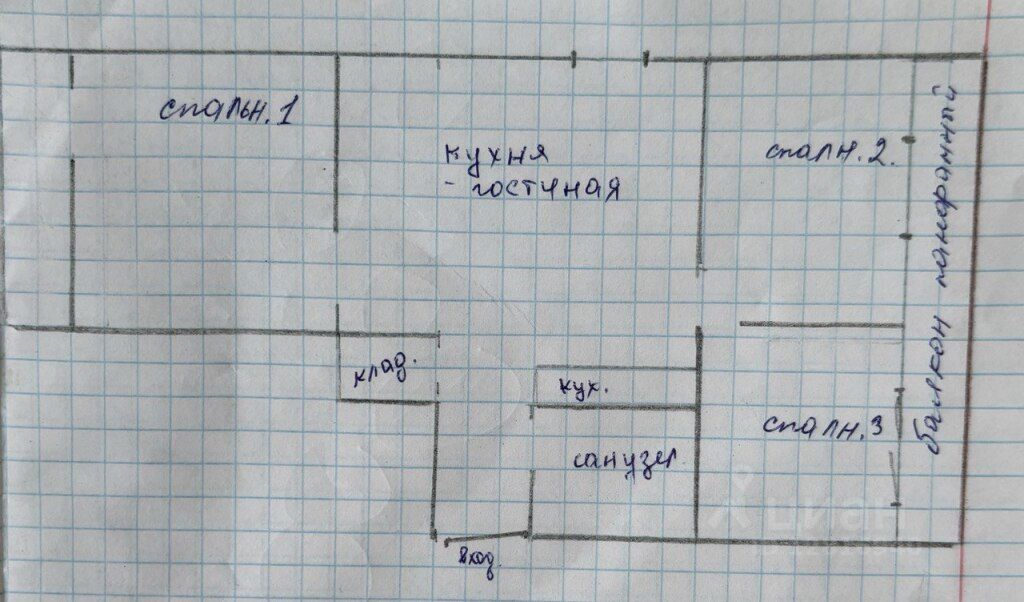 спальн.1
кухня
- гостиная
спалн.2.
балкон панорамный
клад.
кух.
спалн.3
санузел
вход
циан